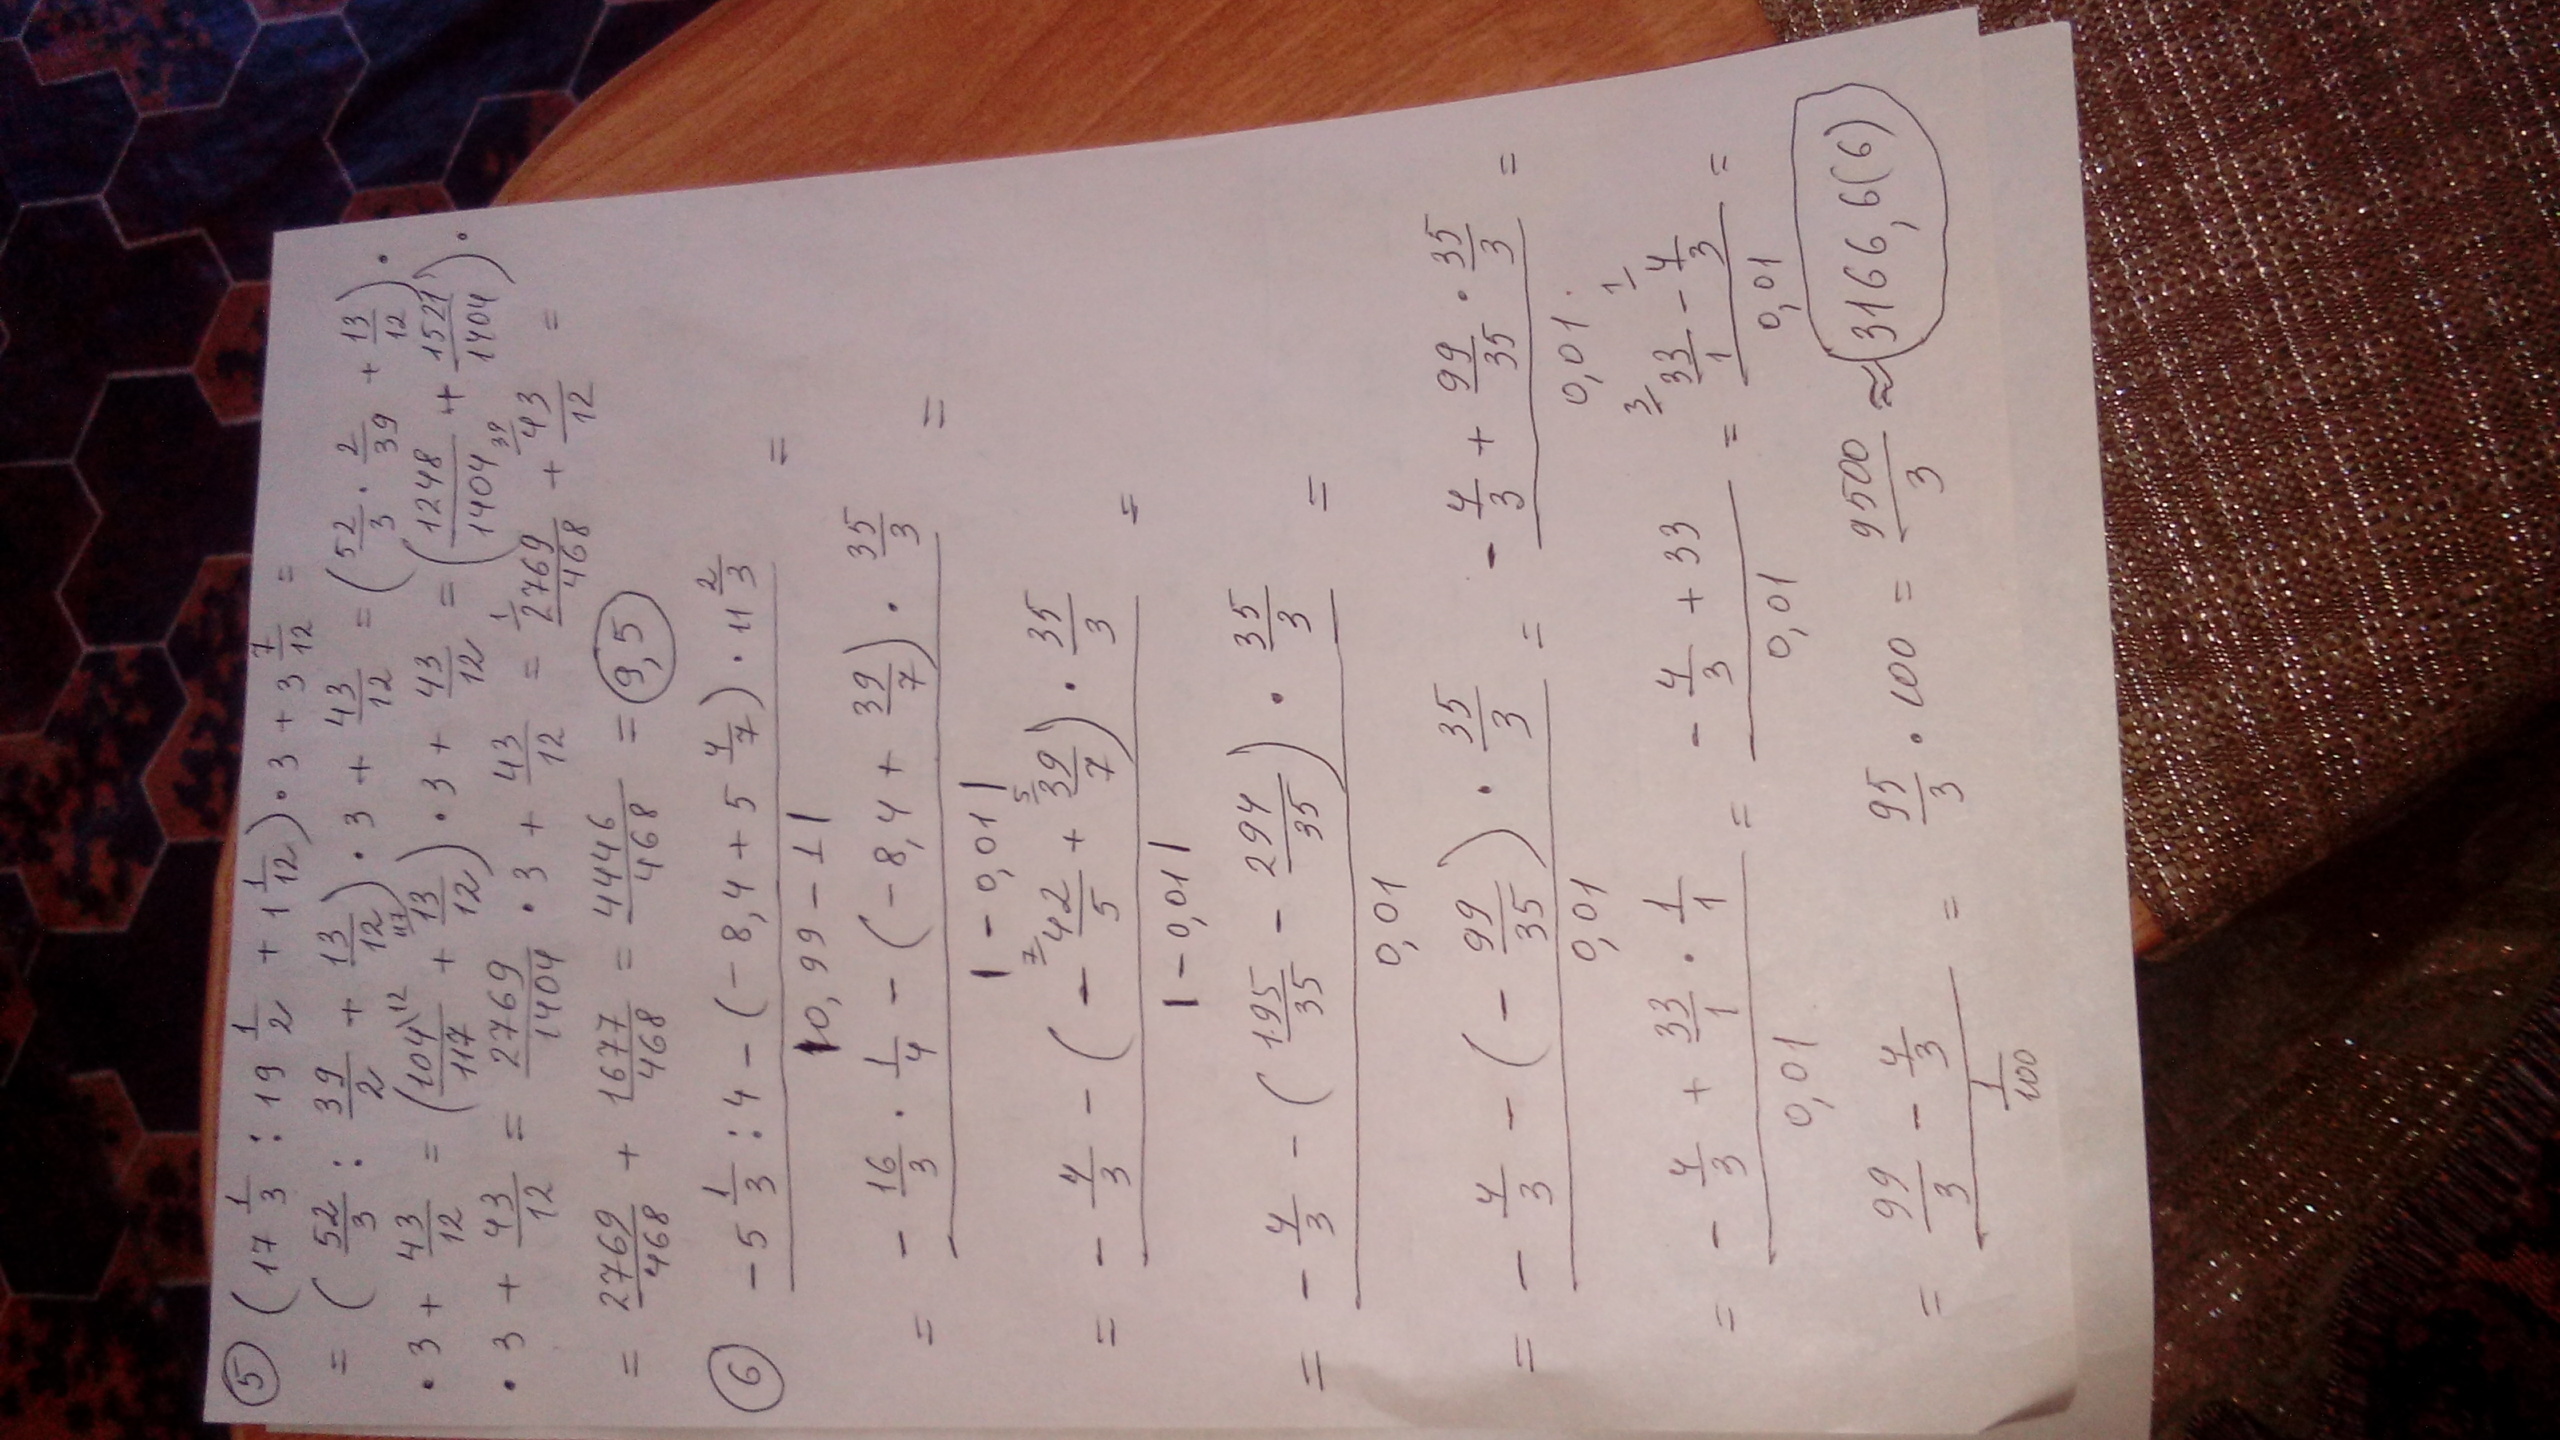 ⑤ (17 1/3 : 19 1/2 + 1 1/12) · 3 + 3 7/12 =
= (52/3 : 39/2 + 13/12) · 3 + 43/12 = (52/3 · 2/39 + 13/12) ·
· 3 + 43/12 = (104\12/117 + 117/13/12) · 3 + 43/12 = (1248/1404 + 1521/1404) ·
· 3 + 43/12 = 2769/1404 · 3 + 43/12 = 1/2769/468 + 39/43/12 =
= 2769/468 + 1677/468 = 4446/468 = 9,5
⑥ (-5 1/3 : 4 - (-8,4 + 5 4/7) · 11 2/3) / |0,99 - 1| =
= (-16/3 · 1/4 - (-8,4 + 39/7) · 35/3) / |-0,01| =
= (-4/3 - (- 7/42/5 + 5/39/7) · 35/3) / |-0,01| =
= (-4/3 - (195/35 - 294/35) · 35/3) / 0,01 =
= (-4/3 - (-99/35) · 35/3) / 0,01 = (-4/3 + 99/35 · 35/3) / 0,01 =
= (-4/3 + 33/1 · 1/1) / 0,01 = (-4/3 + 33) / 0,01 = (3/33/1 - 1/4/3) / 0,01 =
= (99/3 - 4/3) / (1/100) = 95/3 · 100 = 9500/3 ≈ 3166,6(6)